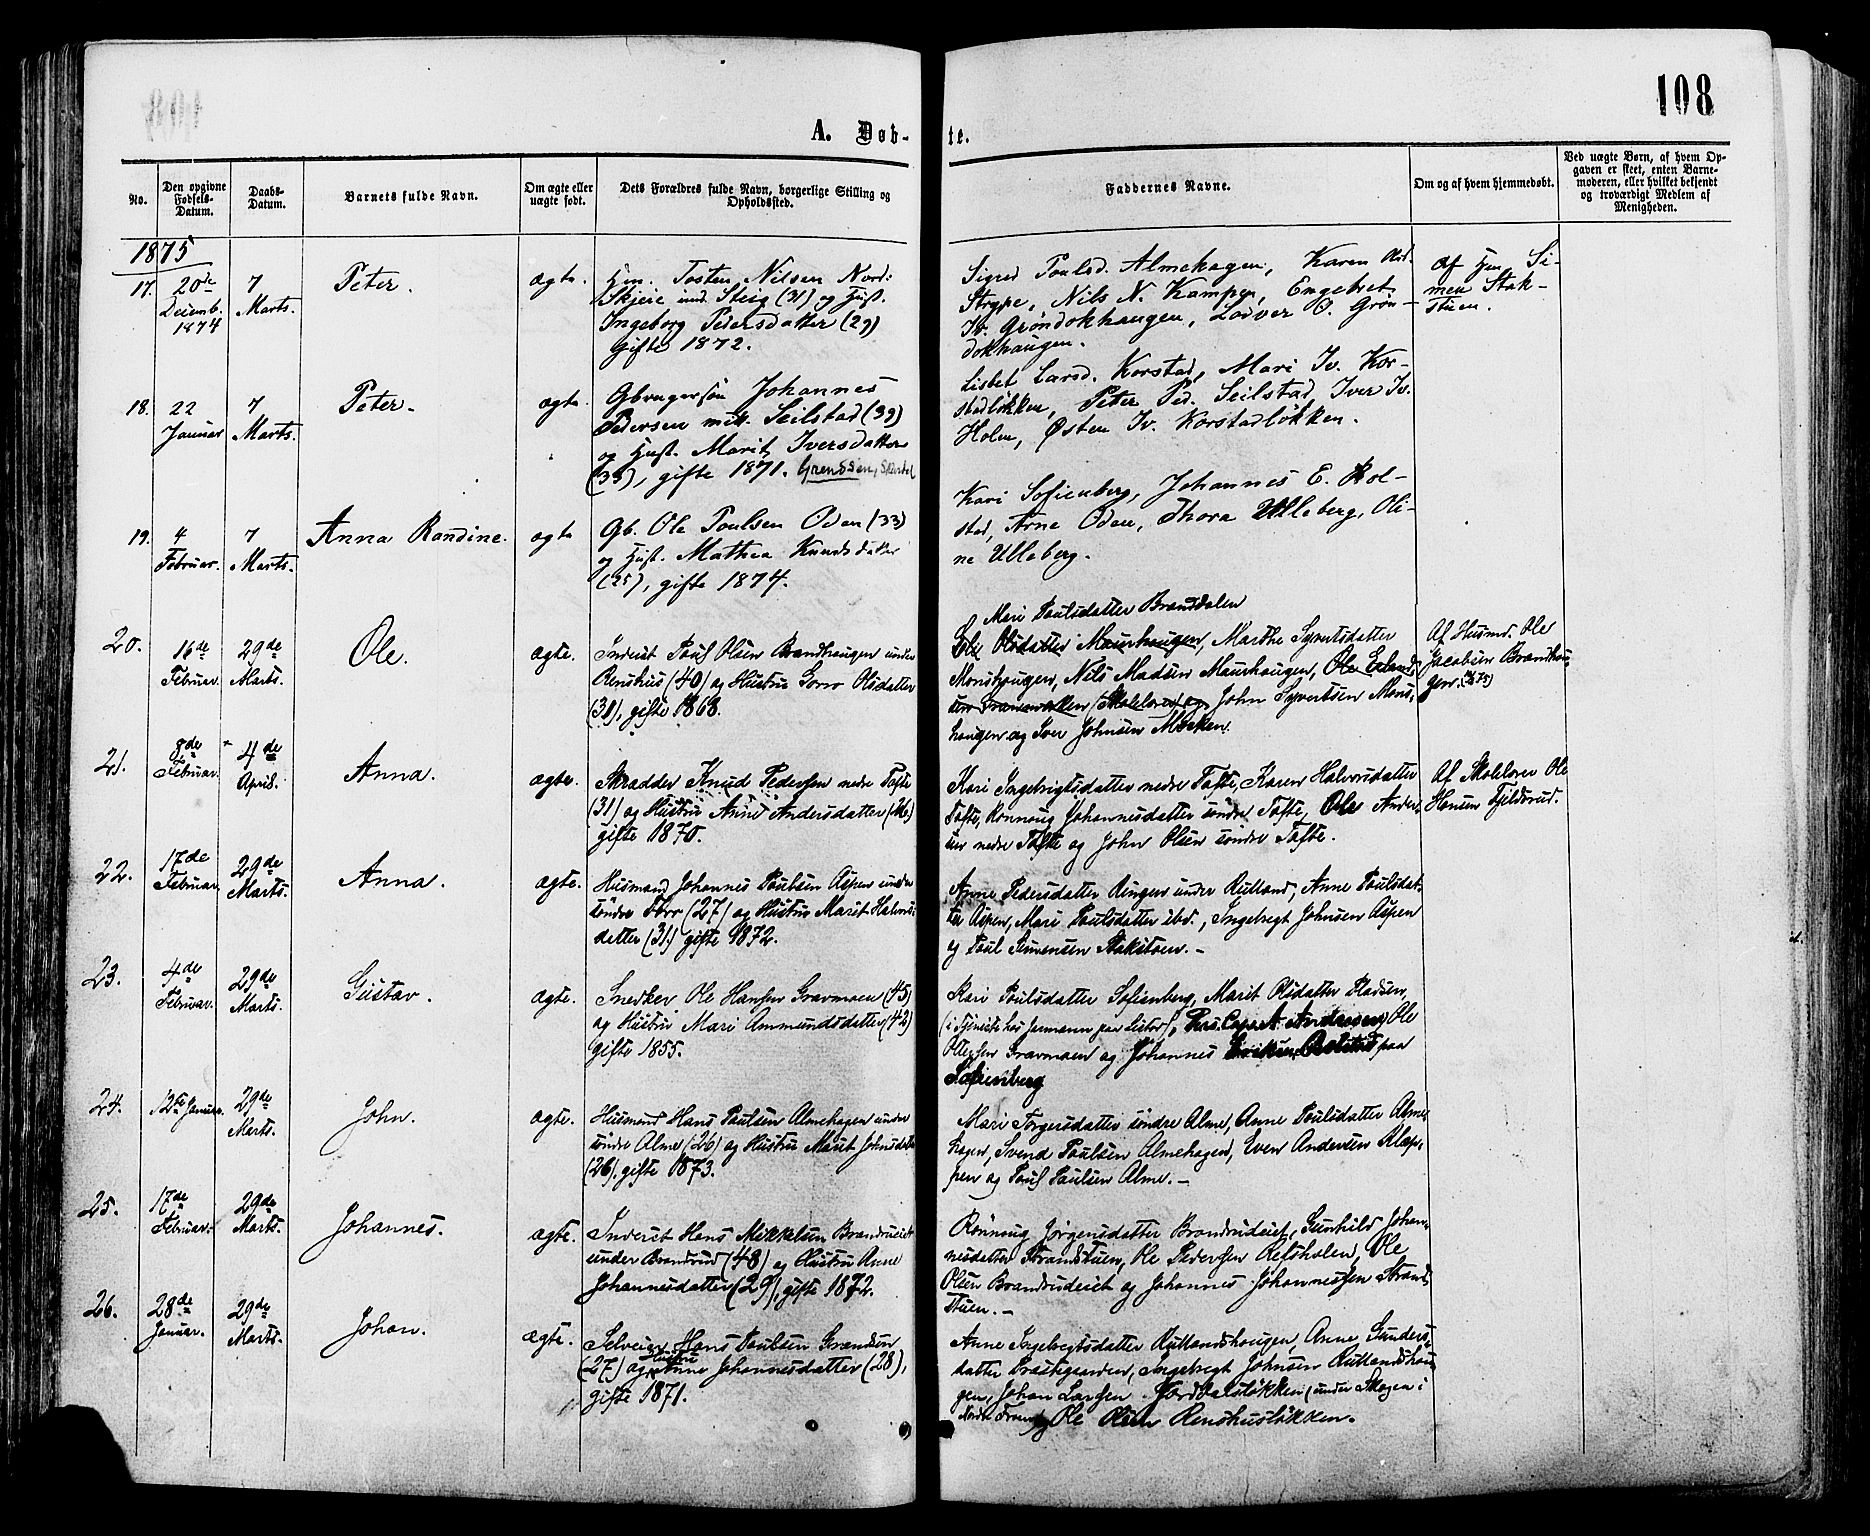 108
A. Døb-
te.
No.
Den opgivne
Fødsels-
Datum.
Daabs-
Datum.
Barnets fulde Navn.
Om ægte eller
uægte født.
Dets Forældres fulde Navn, borgerlige Stilling og
Opholdssted.
Faddernes Navne.
Om og af hvem hjemmedøbt.
Ved uægte Børn, af hvem Op-
gaven er skeet, enten Barne-
moderen, eller hvilket bekjendt
og troværdigt Medlem af
Menigheden.
1875
17.
20de
Decemb.
1874
7
Marts.
Peter.
ægte
Hm. Tosten Nilsen Nord-
Skjeie und. Steig (31) og Hust.
Ingeborg Pedersdatter (29)
gifte 1872.
Sigrid Poulsd. Almehagen, Karen
Strype, Nils N. Kampen, Engebret
Iv. Grøndokhaugen, Lodver O. Grøn-
dokhaugen.
Af Hm Si-
men Stak-
stuen.
18.
22
Januar
7
Marts.
Peter.
ægte
Gbrugersøn Johannes
Pedersen mitt. Seilstad (39)
og Hust. Marit Iversdatter
(33), gifte 1871.
Lisbet Larsd. Korstad, Mari Iv. Kor-
stadløkken, Peter Ped. Seilstad, Iver Iv.
Holen, Østen Iv. Korstadløkken.
19.
4
Februar.
7
Marts.
Anna Randine.
ægte
Gb. Ole Poulsen Oden (33)
og Hust. Mathea Knudsdatter
(25), gifte 1874.
Kari Sofienberg, Johannes E. Rol-
stad, Arne Oden, Thora Ulleberg, Oli-
ne Ulleberg.
20.
16de
Februar.
29de
Marts.
Ole.
ægte.
Inderst Poul Olsen Brandhaugen under
Renshus (40) og Hustru Goro Olsdatter
(31), gifte 1868.
Mari Poulsdatter Brandsdalen
Olsdatter Maurhaugen, Marthe Syvertsdatter
Monshaugen, Nils Madsen Maurhaugen, Ole Erland-
sen (Skolelærer) og John Syvertsen Mons-
haugen og Iver Johnsen Morken.
Af Husmd. Ole
Jacobsen Brandhau-
gen.
21.
8de
Februar.
4de
April.
Anna.
ægte.
Skrædder Knud Pedersen nedre Tofte
(31) og Hustru Anne Andersdatter (26)
gifte 1870.
Kari Ingebrigtsdatter nedre Tofte, Karen Halvorsdatter
Tofte, Rønnoug Johannesdatter søndre Tofte, Ole Ander-
sen nedre Tofte og John Olsen søndre Tofte.
Af Skolelærer Ole
Hansen Fjeldsrud.
22.
17de
Februar.
29de
Marts.
Anna.
ægte.
Husmand Johannes Poulsen Aspen under
søndre Forr (27) og Hustru Marit Halvors-
datter (31) gifte 1872.
Anne Pedersdatter Ringen under Rulland, Anne Poulsdat-
ter Aspen, Mari Poulsdatter ibd., Ingebregt Johnsen Aspen
og Poul Simensen Stakstuen. –
23.
4de
Februar.
29de
Marts.
Gustav.
ægte.
Snedker Ole Hansen Gravmoen (45)
og Hustru Mari Ammundsdatter (42)
gifte 1855.
Kari Poulsdatter Sofienberg, Marit Olsdatter Pladsen,
(i Tjeneste hos Jarmann paa Listad), A. Andresen, Ole
Olsen Gravmoen og Johannes Eriksen Rolstad paa
Sofienberg
24.
12te Januar.
29de
Marts.
John.
ægte.
Husmand Hans Poulsen Almehagen under
søndre Alme (26) og Hustru Marit Johnsdatter
(26), gifte 1873.
Mari Torgersdatter søndre Alme, Anne Poulsdatter Alme-
hagen, Svend Poulsen Almehagen, Even Andersen Klæp-
pen og Poul Poulsen Alme. –
25.
17de
Februar.
29de
Marts.
Johannes.
ægte.
Inderst Hans Mikkelsen Brandrudeiet
under Brandrud (48) og Hustru Anne
Johannesdatter (29), gifte 1872.
Rønnoug Jørgensdatter Brandrudeiet, Gunhild Johan-
nesdatter Strandstuen, Ole Pedersen Refsholen, Ole
Olsen Brandrudeiet og Johannes Johannessen Strand-
stuen. –
26.
28de
Januar.
29de
Marts.
Johan.
ægte.
Selveier Hans Poulsen Grændsen
(27) og Hustru Anne Johannesdatter (28),
gifte 1871.
Anne Ingebregtsdatter Rullandshaugen, Anne Gunders-
datter Præstegaarden, Ingebregt Johnsen Rullandshau-
gen, Johan Larsen Jordbalsløkken (under Skogen i
Nordre Fron) og Ole Olsen Renshusløkken.